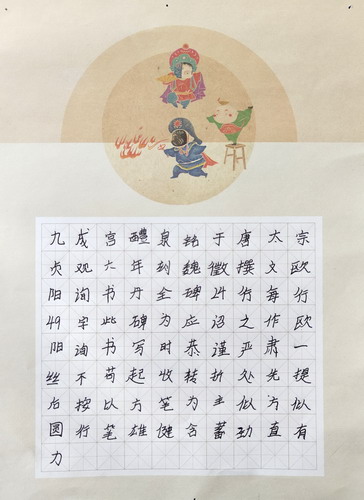 九成宫醴泉铭于唐太宗
贞观六年刻魏徵撰文欧
阳询书丹全碑24行每行
49字此碑为应诏之作欧
阳询书写时恭谨严肃一
丝不苟起收转折处先提
后按以方笔为主似方似
圆行笔雄健含蓄劲直有
力